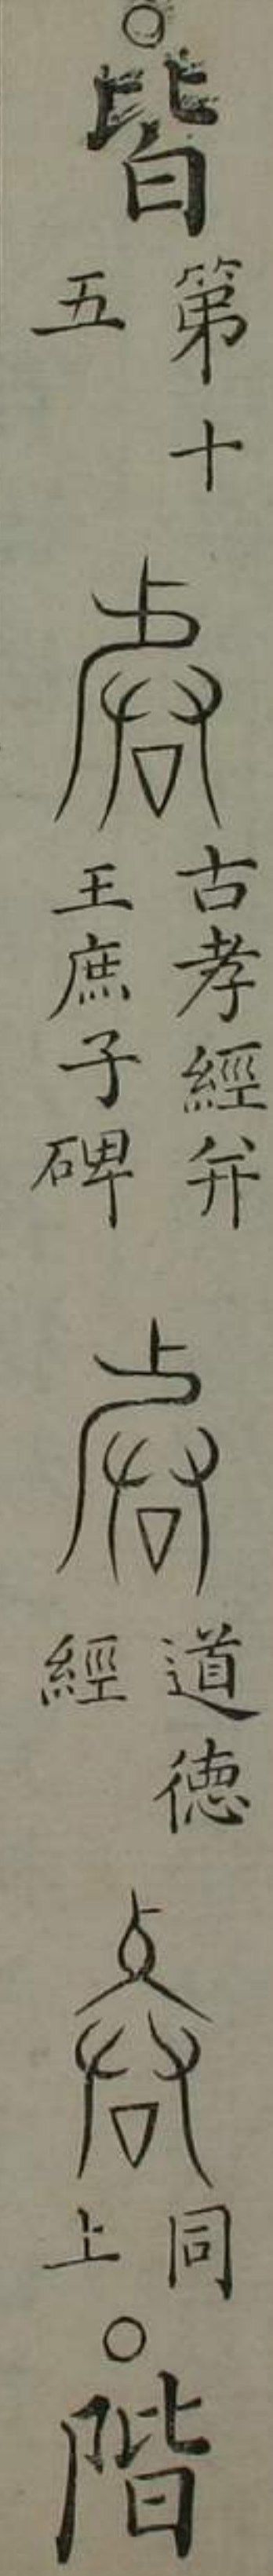 ○皆第十五
古孝經并王庶子碑
道德經
同上○階